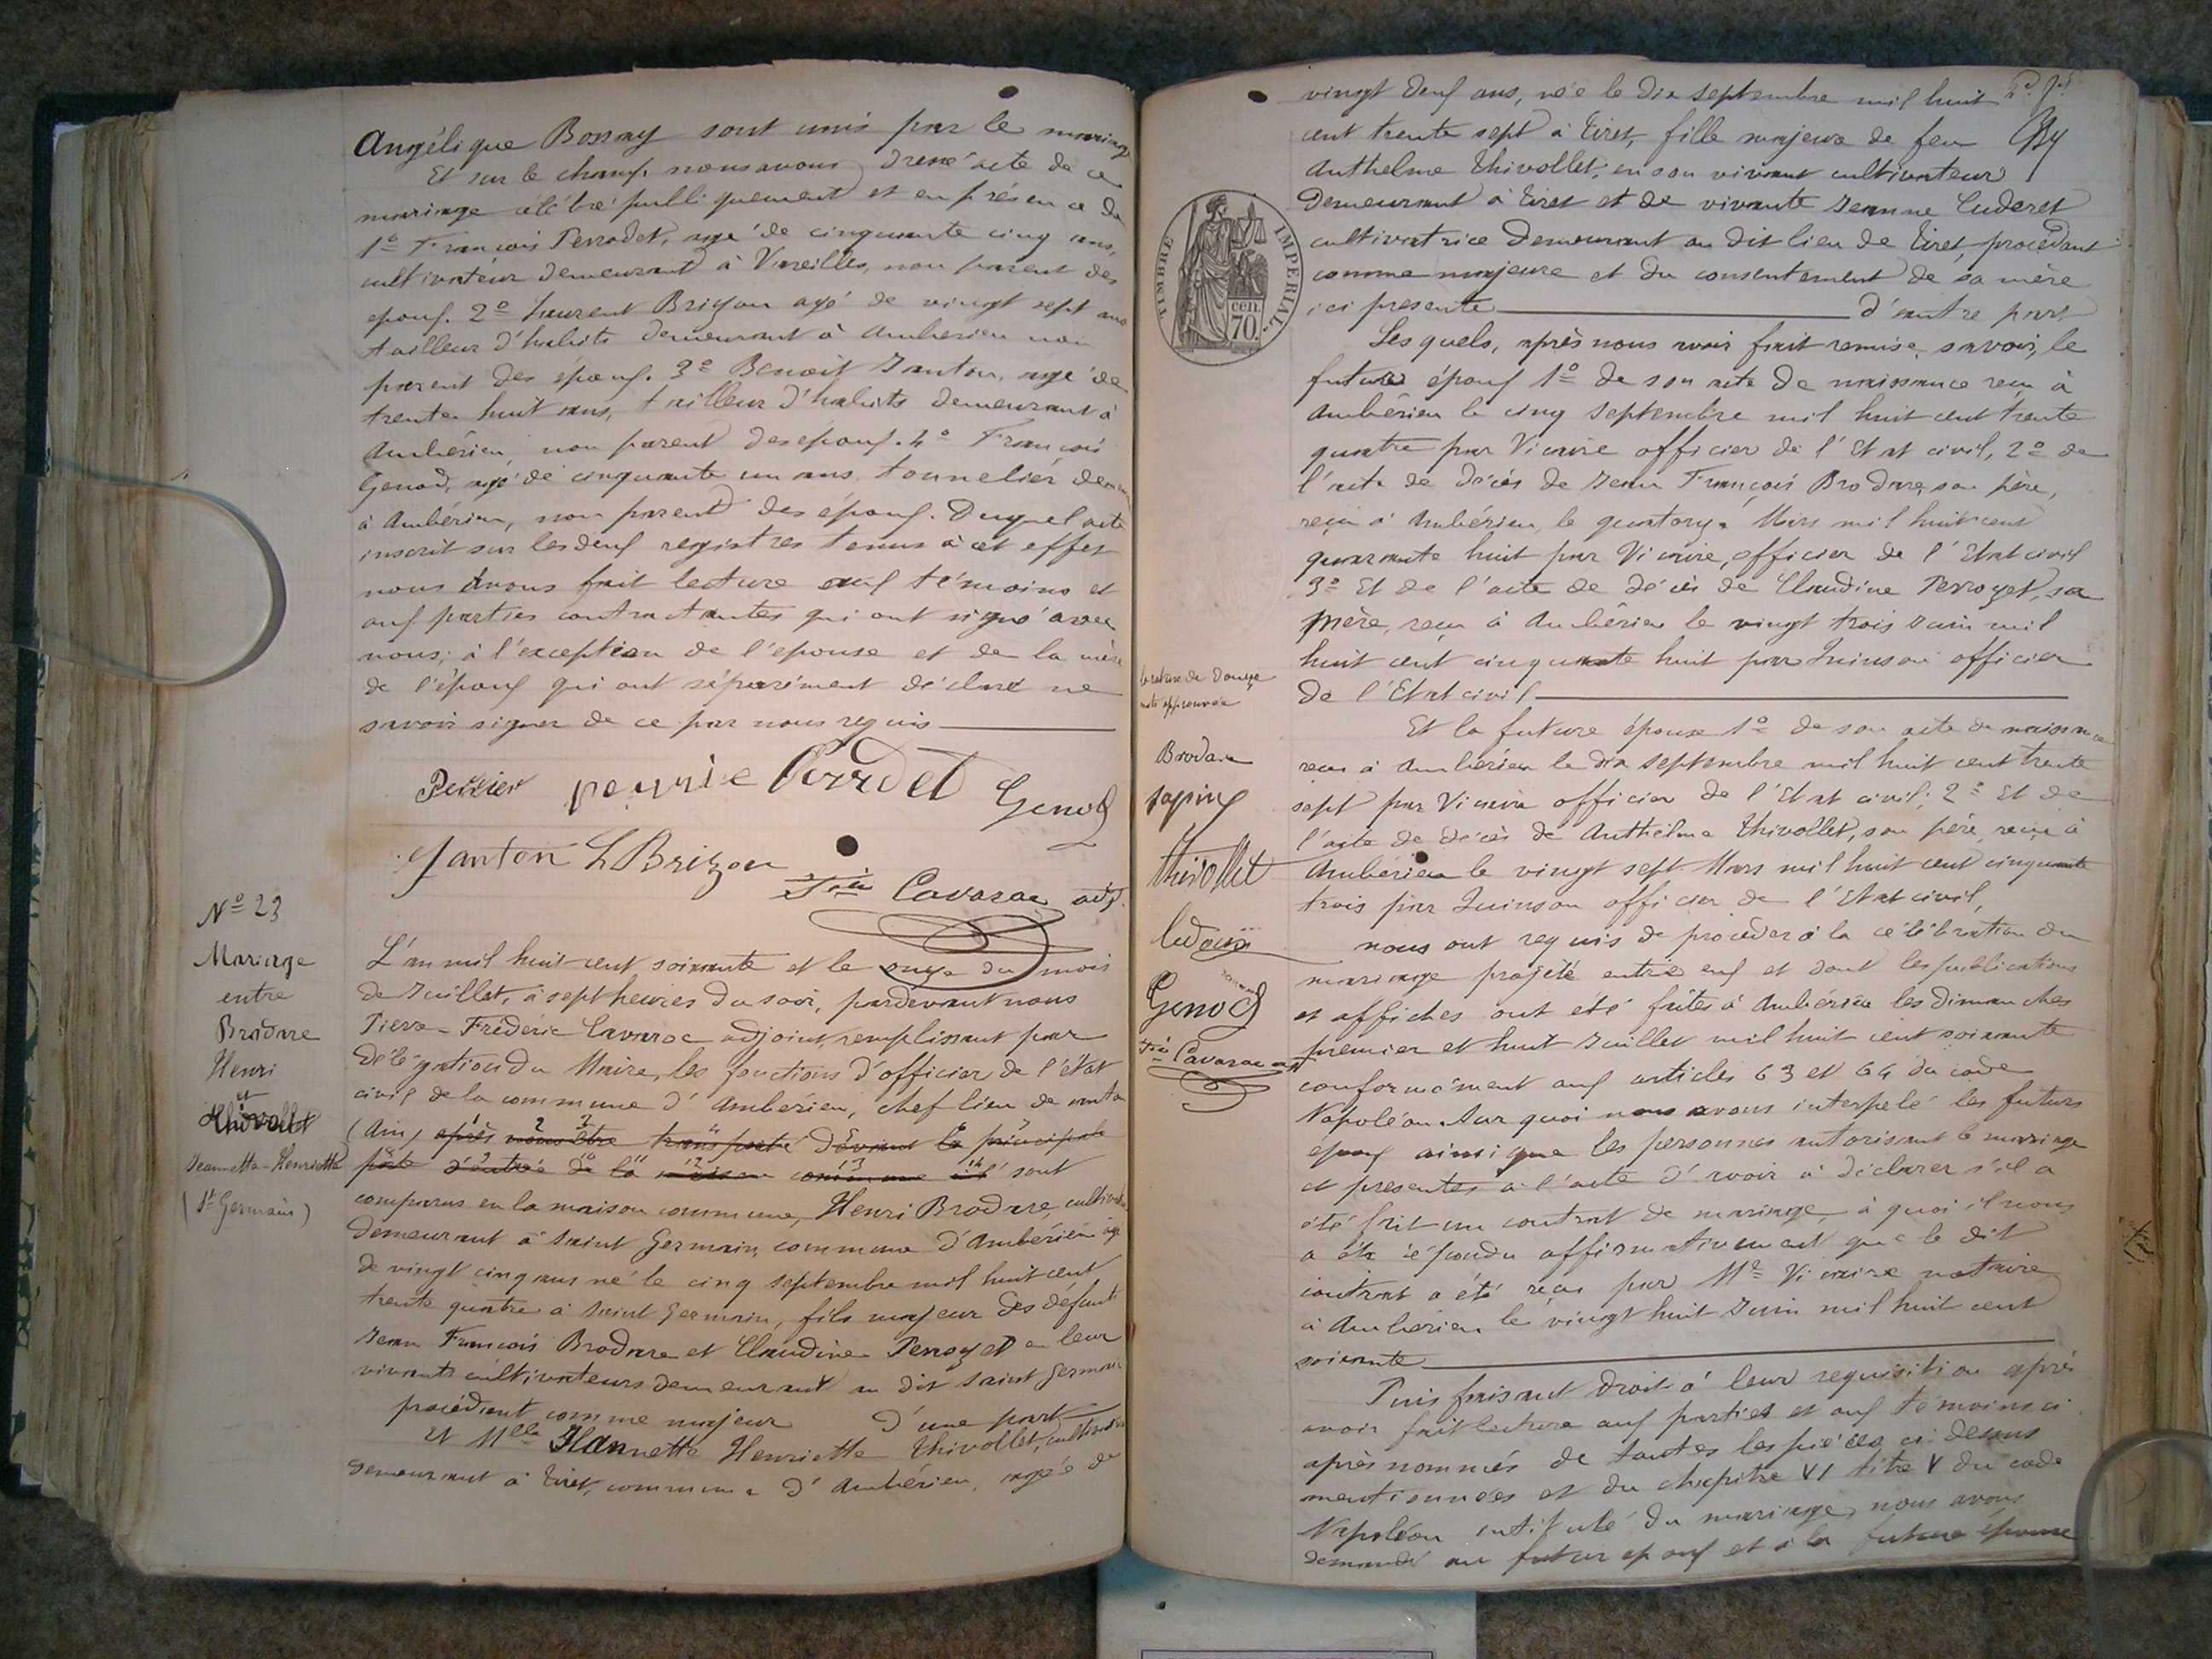 Angélique Bonnay sont unis par le mariage
Et sur le champ nous avons dressé acte de ce
mariage célébré publiquement et en présence de
1º François Perrodet, agé de cinquante cinq ans,
cultivateur demeurant à Vareilles, non parent des
epoux. 2º Laurent Brizon agé de vingt sept ans
tailleur d'habits demeurant à Ambérieu non
parent des époux. 3º Benoit Janton, agé de
trente huit ans, tailleur d'habits demeurant à
Ambérieu, non parent des epoux. 4º François
Genod, agé de cinquante un ans, tonnelier demeu
à Ambérieu, non parent des époux. Duquel acte
inscrit sur les deux registres tenus à cet effet
nous avons fait lecture aux témoins et
aux parties contractantes qui ont signé avec
nous, à l'exception de l'epouse et de la mère
de l'époux qui ont séparément déclaré ne
savoir signer de ce par nous requis
Perrier Perrodet Genod
Janton L Brizon
Fric Cavaroc adj.
Nº 23
Mariage
entre
Brodare
Henri
et
Thivollet
Jeannette-Henriette
(St Germain)
L'an mil huit cent soixante et le onze du mois
de Juillet, à sept heures du soir, pardevant nous
Pierre-Frédéric Cavaroc adjoint remplissant par
délégation du Maire, les fonctions d'officier de l'état
civil de la commune d'Ambérieu, chef lieu de canton
(Ain) après nous être transporté devant la principale
porte d'entrée de la maison commune et sont
comparus en la maison commune, Henri Brodare, cultivateur
demeurant à Saint Germain, commune d'Ambérieu agé
de vingt cinq ans né le cinq septembre mil huit cent
trente quatre à Saint Germain, fils majeur des défunts
Jean François Brodare et Claudine Perroget en leur
vivants cultivateurs demeurant au dit Saint Germain
procédant comme majeur d'une part
Et Mlle Jeannette Henriette Thivollet, cultivatrice
demeurant à Tiret, commune d'Ambérieu, agée de
vingt deux ans, née le dix septembre mil huit
cent trente sept à Tiret, fille majeure de feu
Anthelme Thivollet, en son vivant cultivateur
demeurant à Tiret et de vivante Jeanne Cuderet
cultivatrice demeurant au dit lieu de Tiret, procédant
comme majeure et du consentement de sa mère
ici presente d'autre part
TIMBRE IMPERIAL.
cen.
70.
Lesquels, après nous avoir fait remise, savoir, le
futur époux 1º de son acte de naissance reçu à
Ambérieu le cinq Septembre mil huit cent trente
quatre par Vicaire officier de l'Etat civil, 2º de
l'acte de décès de Jean François Brodare, son père,
reçu à Ambérieu, le quatorze Mars mil huit cent
quarante huit par Vicaire, officier de l'Etat civil
3º Et de l'acte de décès de Claudine Perroget, sa
mère, reçu à Ambérieu le vingt trois Juin mil
huit cent cinquante huit par Quinson officier
de l'Etat civil
Et la future épouse 1º de son acte de naissance
reçu à Ambérieu le dix septembre mil huit cent trente
sept par Vicaire officier de l'Etat civil; 2º Et de
l'acte de décès de Anthelme Thivollet, son père, reçu à
Ambérieu le vingt sept Mars mil huit cent cinquante
trois par Quinson officier de l'Etat civil,
nous ont requis de procéder à la célébration du
mariage projeté entre eux et dont les publications
et affiches ont été faites à Ambérieu les dimanches
premier et huit Juillet mil huit cent soixante
conformément aux articles 63 et 64 du code
Napoléon. Sur quoi nous avons interpelé les futurs
epoux ainsi que les personnes autorisant le mariage
et presentes à l'acte d'avoir à déclarer s'il a
été fait un contrat de mariage, à quoi il nous
a été répondu affirmativement que le dit
contrat a été reçu par Me Vicaire notaire
à Ambérieu le vingt huit Juin mil huit cent
soixante
Puis faisant droit à leur requisition après
avoir fait lecture aux parties et aux témoins ci
après nommés de toutes les pièces ci-dessus
mentionnées et du chapitre VI titre V du code
Napoléon intitulé du mariage, nous avons
demandé au futur epoux et à la future épouse
la rature de douze
mots approuvée
Brodare
Thivollet
Genod
Fric Cavaroc adj